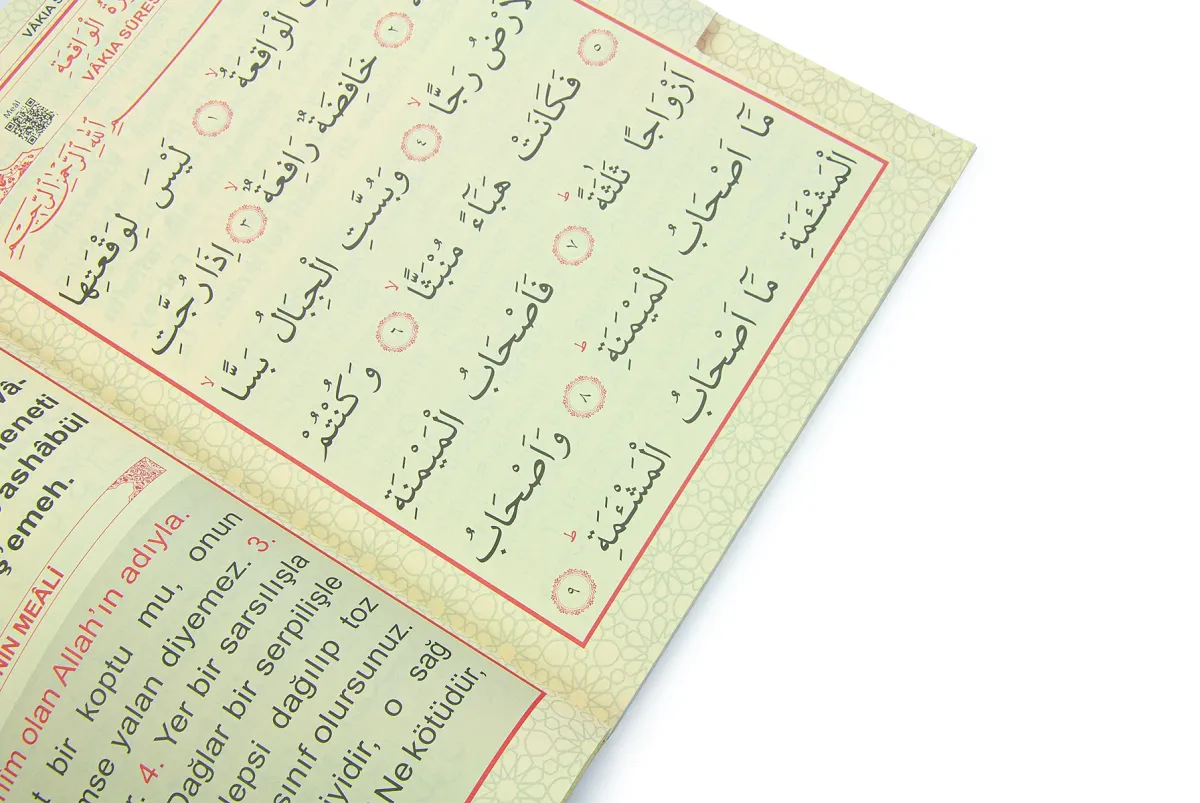 VÂKIA S
سُورَةُ الْوَاقِعَةِ
VÂKIA SÛRES
Meâl
الْوَاقِعَةُ ۙ ﴿١﴾ لَيْسَ لِوَقْعَتِهَا
﴿٢﴾ خَافِضَةٌ رَافِعَةٌ ۙ ﴿٣﴾ اِذَا رُجَّتِ
الْاَرْضُ رَجًّا ۙ ﴿٤﴾ وَبُسَّتِ الْجِبَالُ بَسًّا ۙ
﴿٥﴾ فَكَانَتْ هَبَٓاءً مُنْبَثًّا ۙ ﴿٦﴾ وَكُنْتُمْ
اَزْوَاجًا ثَلٰثَةً ۜ ﴿٧﴾ فَاَصْحَابُ الْمَيْمَنَةِ
مَٓا اَصْحَابُ الْمَيْمَنَةِ ۜ ﴿٨﴾ وَاَصْحَابُ
الْمَشْـَٔمَةِ مَٓا اَصْحَابُ الْمَشْـَٔمَةِ ۜ ﴿٩﴾
vâ-
meneti
ashâbül
ş'emeh.
NİN MEÂLİ
olan Allah'ın adıyla.
bir koptu mu, onun
yalan diyemez. 3.
4. Yer bir sarsılışla
Dağlar bir serpilişle
dağılıp toz
sınıf olursunuz.
iyidir, o sağ
Ne kötüdür,